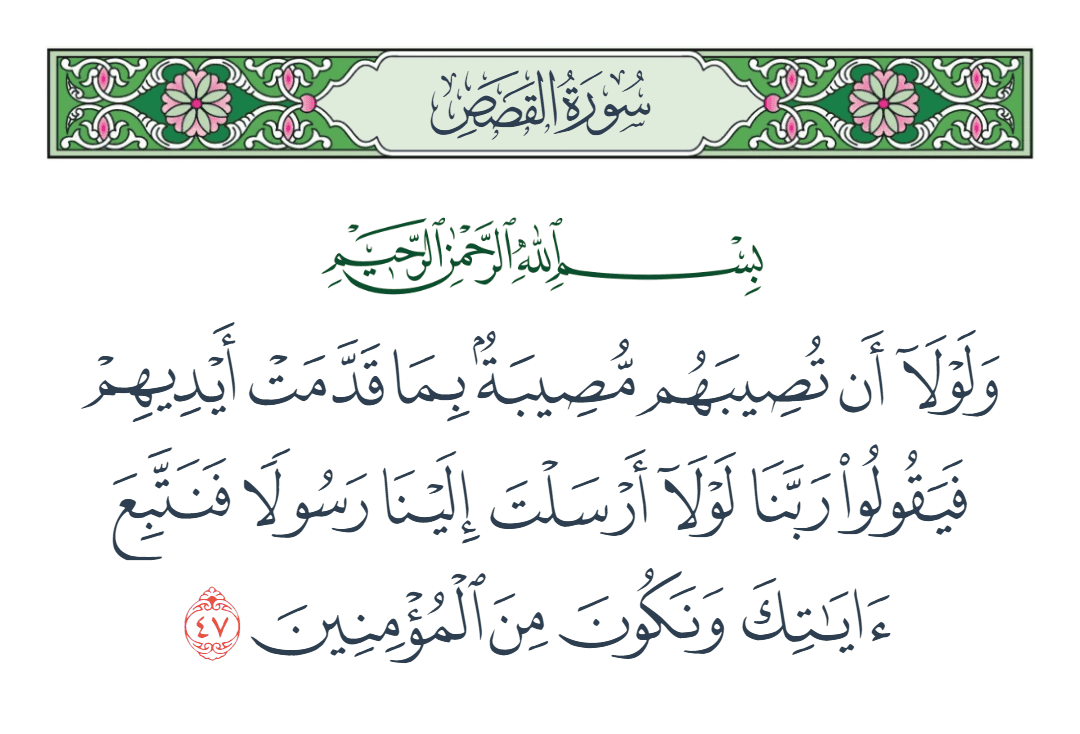 سُورَةُ القَصَصِ
بِسْمِ ٱللَّهِ ٱلرَّحْمَٰنِ ٱلرَّحِيمِ
وَلَوْلَآ أَن تُصِيبَهُم مُّصِيبَةٌۢ بِمَا قَدَّمَتْ أَيْدِيهِمْ
فَيَقُولُوا۟ رَبَّنَا لَوْلَآ أَرْسَلْتَ إِلَيْنَا رَسُولًا فَنَتَّبِعَ
ءَايَٰتِكَ وَنَكُونَ مِنَ ٱلْمُؤْمِنِينَ ٤٧